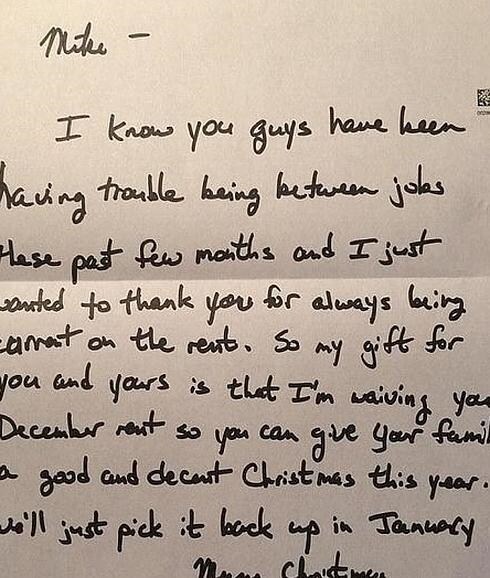 Mike -
I know you guys have been
having trouble being between jobs
these past few months and I just
wanted to thank you for always being
current on the rent. So my gift for
you and yours is that I'm waiving you
December rent so you can give your famil
a good and decent Christmas this year.
we'll just pick it back up in January
Merry Christmas